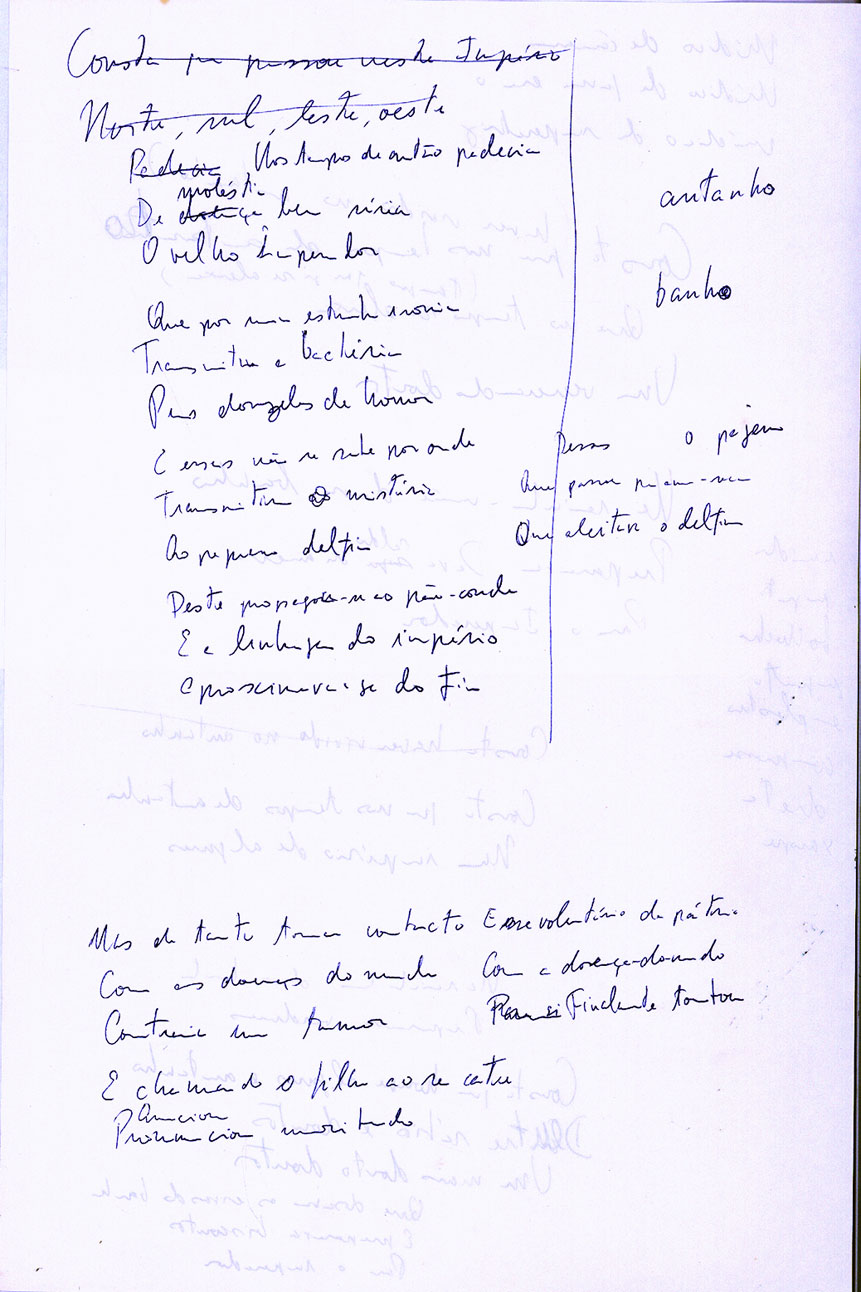 Consta que passou neste Império
Norte, sul, leste, oeste
Padecia, Nos tempos de antão padecia
moléstia
De doença bem séria
O velho Imperador
Que por uma estranha ironia
Transmitiu a bactéria
Pras donzelas de honor
E essas não se sabe por onde
Transmitiram o mistério
Ao pequeno delfim
Deste propagou-se ao pão-conde
E a linhagem do império
aproximava-se do fim
antanho
banho
Dessas o pajem
Que passou
Que aleitava o delfim
Mas de tanto tomar contacto
Com as doenças do mundo
Contraiu um tumor
E chamando o filho ao se
Anunciou
Pronunciou moribundo
Esse voluntário da pátria
Com a doença-do-mundo
Finalmente tombou